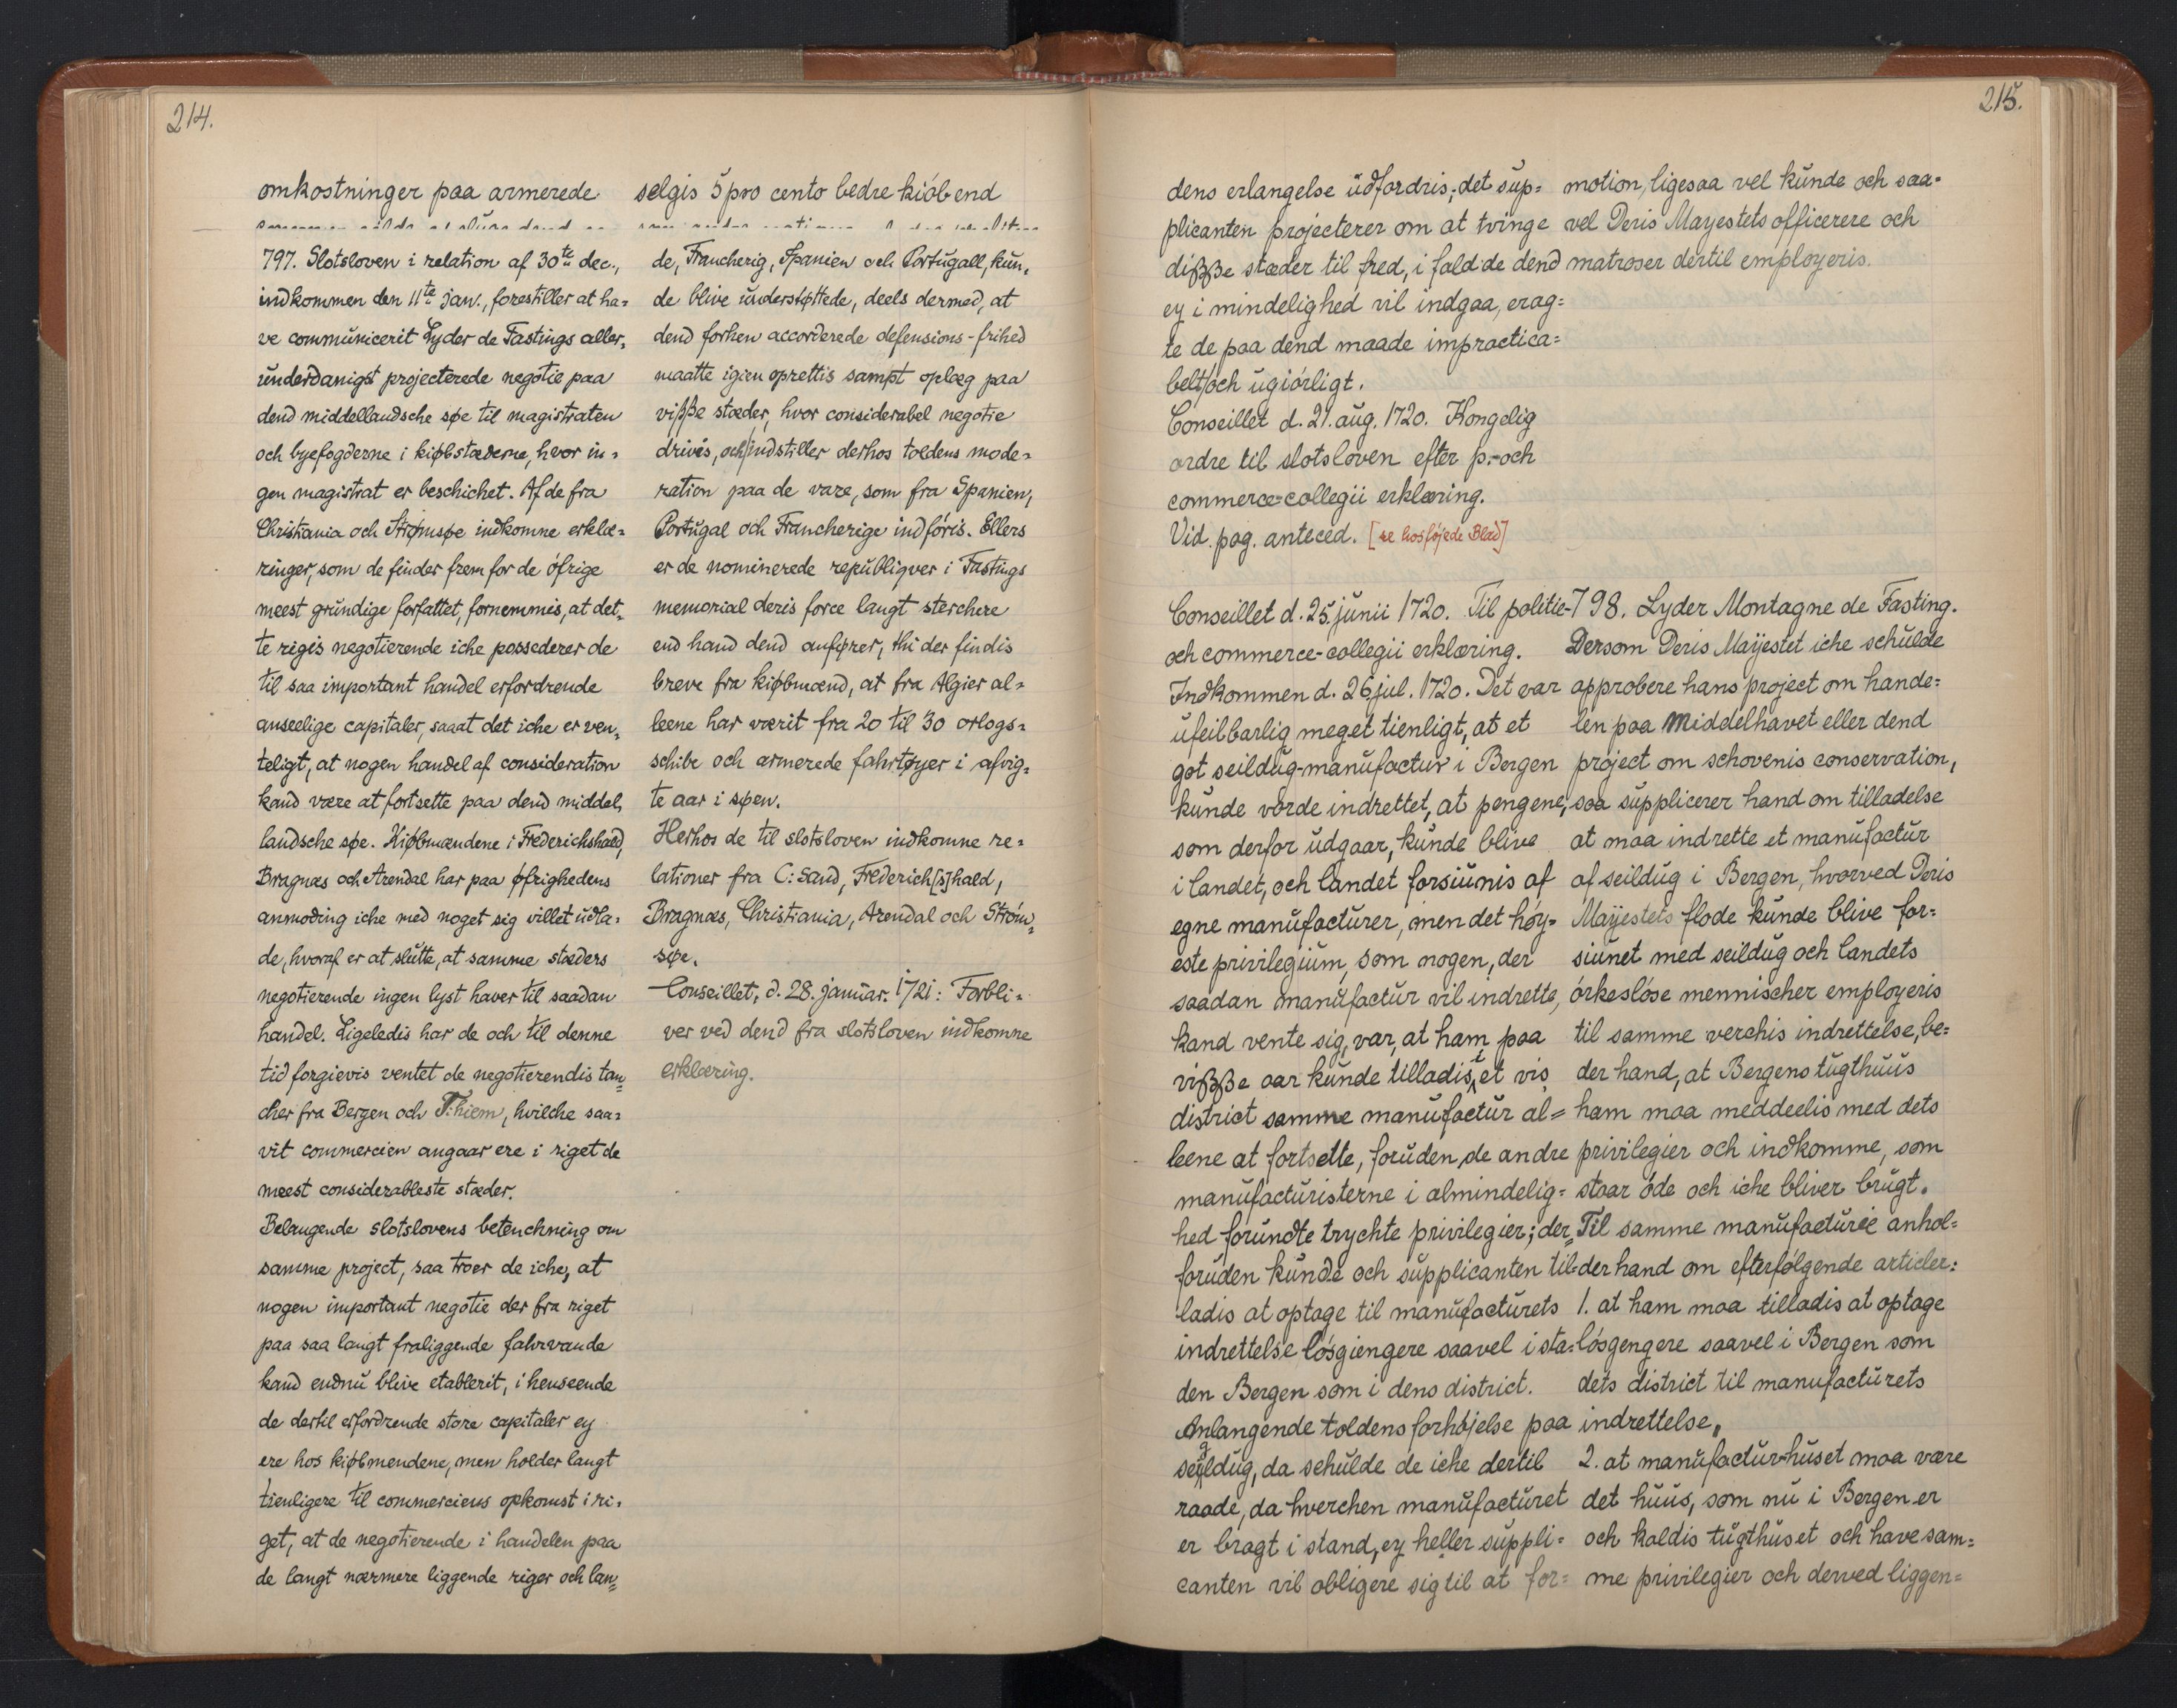 214.
omkostninger paa armerede
797. Slotsloven i relation af 30te dec.,
indkommen den 11te jan., forestiller at ha=
ve communicerit Lyder de Fastings aller=
underdanigst projecterede negotie paa
dend middellandsche søe til magistraten
och byefogderne i kiøbstæderne, hvor in=
gen magistrat er beschichet. Af de fra
Christiania och Strømsøe indkomne erklæ=
ringer, som de finder frem for de öfrige
meest grundige forfattet, fornemmis, at det=
te rigis negotierende iche possederer de
til saa important handel erfordrende
anseelige capitaler, saaat det iche er ven=
teligt, at nogen handel af consideration
kand være at fortsette paa dend middel=
landsche søe. Kiøbmændene i Frederichshald,
Bragnæs och Arendal har paa øfrighedens
anmoding iche med noget sig villet udla=
de, hvoraf er at slutte, at samme stæders
negotierende ingen lyst haver til saadan
handel. Ligeledis har de och til denne
tid forgievis ventet de negotierendis tan=
cher fra Bergen och T:hiem, hvilche saa=
vit commercien angaar ere i riget de
meest considerableste stæder.
Belangende slotslovens betenchning om
samme project, saa troer de iche, at
nogen important negotie der fra riget
paa saa langt fraliggende fahrvande
kand endnu blive etablerit, i henseende
de dertil erfordrende store capitaler ey
ere hos kiøbmendene, men holder langt
tienligere til commerciens opkomst i ri=
get, at de negotierende i handelen paa
de langt nærmere liggende riger och lan=
selgis 5 pro cento bedre kiöb end
de, Francherig, Spanien och Portugall, kun=
de blive understøttede, deels dermed, at
dend forhen accorderede defensions-frihed
maatte igien oprettis sampt oplæg paa
viße stæder, hvor considerabel negotie
drivis, och indstiller derhos toldens mode=
ration paa de vare, som fra Spanien,
Portugal och Francherige indföris. Ellers
er de nominerede republiqver i Fastings
memorial deris force langt sterchere
end hand dend anfører, thi der findis
breve fra kiøbmænd, at fra Algier al=
leene har værit fra 20 til 30 orlogs=
schibe och armerede fahrtøyer i afvig=
te aar i søen.
Herhos de til slotsloven indkomne re=
lationer fra C: Sand, Frederich[s]hald,
Bragnæs, Christiania, Arendal och Ström=
søe.
Conseillet, d. 28. januar. 1721: Forbli=
ver ved dend fra slotsloven indkomne
erklæring.
215.
dens erlangelse udfordris; det sup=
plicanten projecterer om at tvinge
diße stæder til fred, i fald de dend
ey i mindelighed vil indgaa, erag=
te de paa dend maade impractica=
belt och ugiörligt.
Conseillet d. 21. aug. 1720. Kongelig
ordre til slotsloven efter p.- och
commerce-collegii erklæring.
Vid. pag. anteced. [se hosföjede Blad]
motion, ligesaa vel kunde och saa=
vel Deris Mayestets officerere och
matroser dertil employeris.
Conseillet d. 25. junii 1720. Til politie-
och commerce-collegii erklæring.
Indkommen d. 26 jul. 1720. Det var
ufeilbarlig meget tienligt, at et
got seildug-manufactur i Bergen
kunde vorde indrettet, at pengene,
som derfor udgaar, kunde blive
i landet, och landet forsiunis af
egne manufacturer, men det höy=
este privilegium, som nogen, der
saadan manufactur vil indrette,
kand vente sig, var, at ham paa
viße aar kunde tilladis, et vis
district samme manufactur al=
leene at fortsette, foruden de andre
manufacturisterne i almindelig=
hed forundte trychte privilegier; der=
foruden kunde och supplicanten til=
ladis at optage til manufacturets
indrettelse lösgiengere saavel i sta=
den Bergen som i dens district.
Anlangende toldens forhöjelse paa
seyldug, da schulde de iche dertil
raade, da hverchen manufacturet
er bragt i stand, ey heller suppli=
canten vil obligere sig til at for=
798. Lyder Montagne de Fasting.
Dersom Deris Mayestet iche schulde
approbere hans project om hande=
len paa Middelhavet eller dend
project om schovenis conservation,
saa supplicerer hand om tilladelse
at maa indrette et manufactur
af seildug i Bergen, hvorved Deris
Mayestets flode kunde blive for=
siunet med seildug och landets
örkeslöse mennischer employeris
til samme verchis indrettelse, be=
der hand, at Bergens tugthuus
ham maa meddeelis med dets
privilegier och indkomme, som
staar öde och iche bliver brugt.
Til samme manufacturie anhol=
der hand om efterfölgende articler:
1. at ham maa tilladis at optage
lösgengere saavel i Bergen som
dets district til manufacturets
indrettelse,
2. at manufactur-huset maa være
det huus, som nu i Bergen er
och kaldis tugthuset och have sam=
me privilegier och derved liggen=